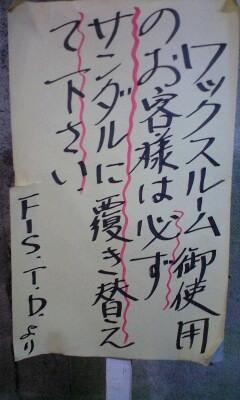 ワックスルーム御使用
のお客様は必ず
サンダルに覆き替え
て下さい
F.I.S.T.D.より